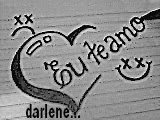 xx
Eu te amo
xx
darlene...